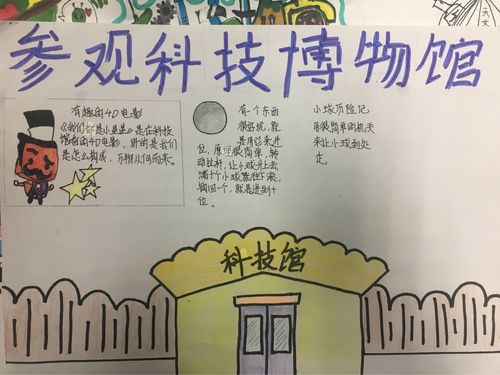 参观科技博物馆
有趣的4D电影
《我们是小星星》是在科技
馆看的4D电影，讲的是我们
是怎么构成，万物从何而来。
有一个东西
很好玩，就
是用它来进
位，原理很简单，转
动拉杆，让小球升上去，
满十个小球就往下滚，
回一个，就是进到十
位。
小球历险记
用很简单的机关
来让小球到处
走。
科技馆